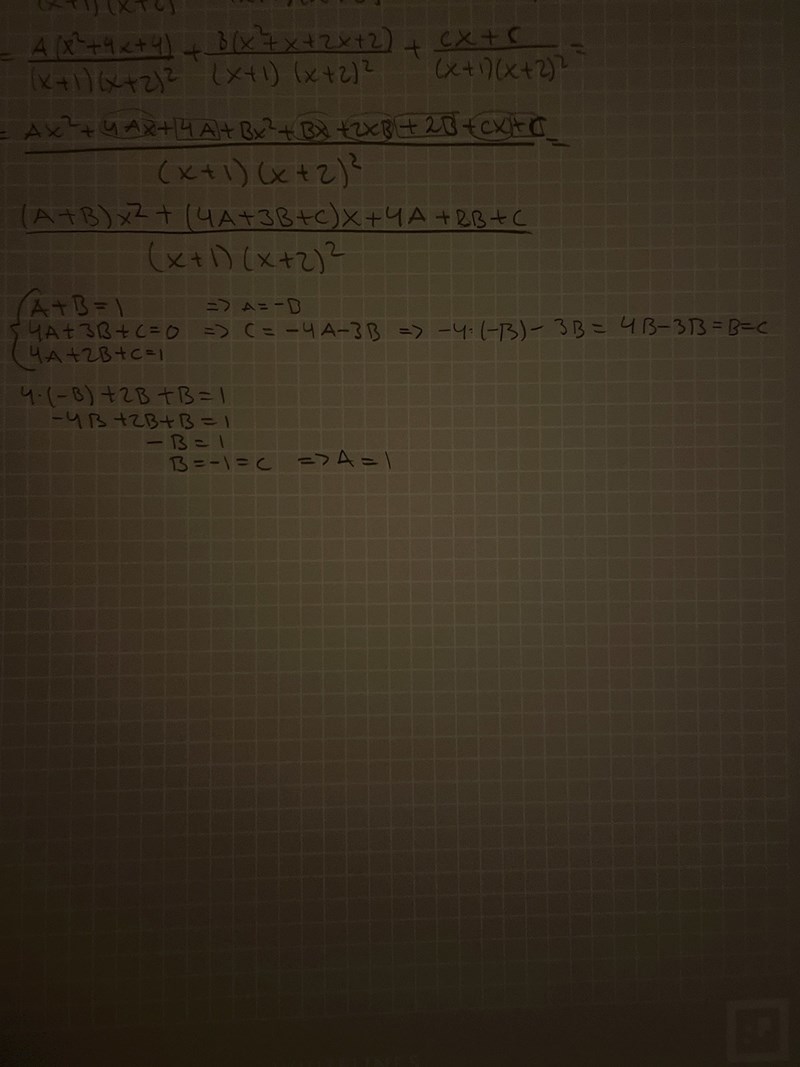 = A(x²+4x+4)/(x+1)(x+2)² + B(x²+x+2x+2)/(x+1)(x+2)² + cx+c/(x+1)(x+2)² =
= Ax²+4Ax+4A+Bx²+Bx+2xB+2B+cx+C/(x+1)(x+2)² =
(A+B)x²+(4A+3B+c)x+4A+2B+c/(x+1)(x+2)²
A+B=1 => A=-B
4A+3B+c=0 => c=-4A-3B => -4·(-B)-3B=4B-3B=B=c
4A+2B+c=1
4·(-B)+2B+B=1
-4B+2B+B=1
-B=1
B=-1=c => A=1